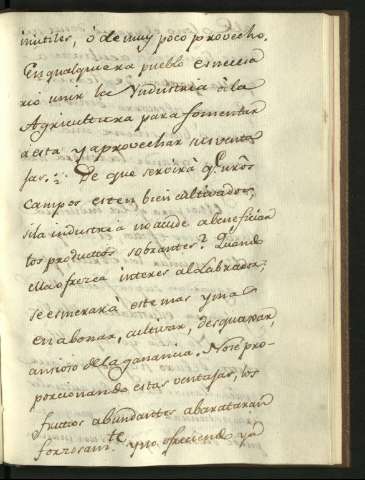 inutiles, ó de muy poco provecho.
En qualquiera pueblo es necesa
rio unir la Yndustria à la
Agricultura para fomentar
a esta y aprovechar sus venta
jas. De que servirà q.e nrôs
campos esten bien cultivados,
si la industria no acude a beneficiar
los productos sobrantes? Quando
ella ofrezca interes al Labrador,
se esmerarà este mas y mas
en abonar, cultivar, desquaxar,
ansioso de la ganancia. No se pro-
porcionando estas ventajas, los
frutos abundantes abarataran
forzosam.te y no ofreciendo ya